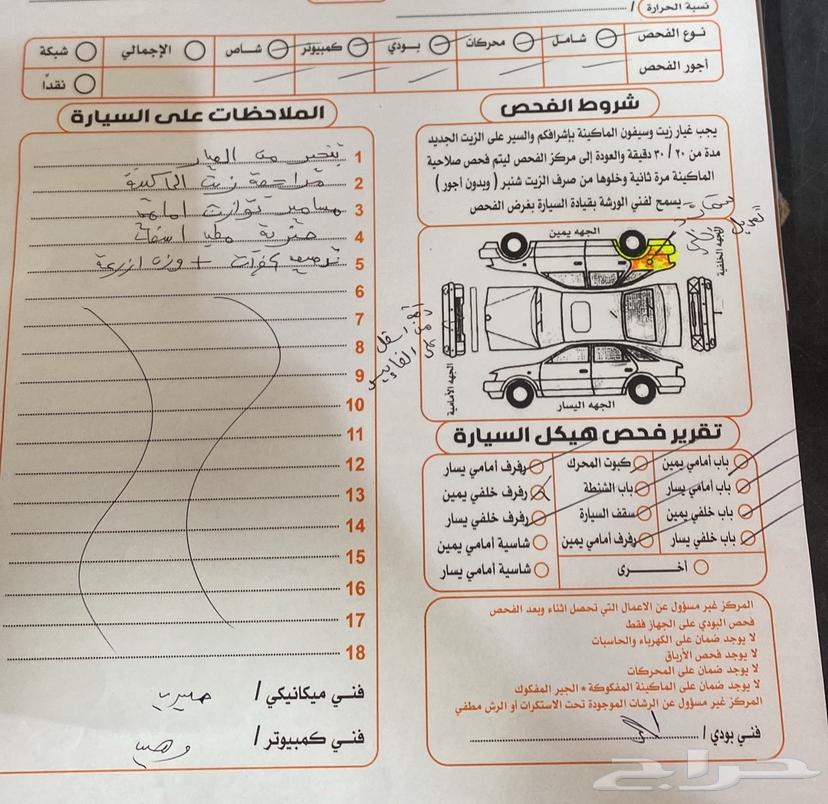 نسبة الحرارة /
نوع الفحص شامل محركات بودي كمبيوتر شاص الإجمالي شبكة
أجور الفحص نقداً
شروط الفحص
يجب غيار زيت وسيفون الماكينة بإشرافكم والسير على الزيت الجديد
مدة من ٢٠ / ٣٠ دقيقة والعودة إلى مركز الفحص ليتم فحص صلاحية
الماكينة مرة ثانية وخلوها من صرف الزيت شنبر ( وبدون أجور )
يسمح لفني الورشة بقيادة السيارة بغرض الفحص
الجهه يمين
الجهه الخلفية
الجهه الأمامية
الجهه اليسار
تقرير فحص هيكل السيارة
باب أمامي يمين كبوت المحرك رفرف أمامي يسار
باب أمامي يسار باب الشنطة رفرف خلفي يمين
باب خلفي يمين سقف السيارة رفرف خلفي يسار
باب خلفي يسار رفرف أمامي يمين شاسية أمامي يمين
أخرى شاسية أمامي يسار
المركز غير مسؤول عن الاعمال التي تحصل اثناء وبعد الفحص
فحص البودي على الجهاز فقط
لا يوجد ضمان على الكهرباء والحاسبات
لا يوجد فحص الأرباق
لا يوجد ضمان على المحركات
لا يوجد ضمان على الماكينة المفكوكة * الجير المفكوك
المركز غير مسؤول عن الرشات الموجودة تحت الاستكرات أو الرش مطفي
فني بودي /
الملاحظات على السيارة
1 من
2 زيت
3 مسامير توازن
4
5 + وزن اذرعة
6
7
8
9
10
11
12
13
14
15
16
17
18
فني ميكانيكي /
فني كمبيوتر /
حراج